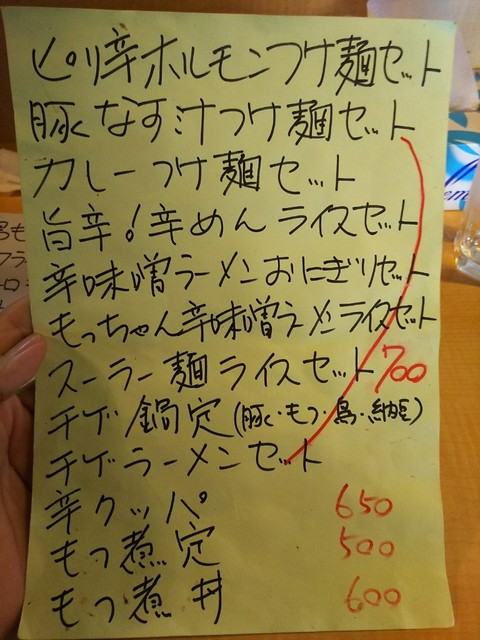 ピリ辛ホルモンつけ麺セット
豚なす汁つけ麺セット
カレーつけ麺セット
旨辛!辛めんライスセット
辛味噌ラーメンおにぎりセット
もっちゃん辛味噌ラーメンライスセット
スーラー麺ライスセット 700
チゲ鍋定(豚・もつ・鳥・納豆)
チゲラーメンセット
辛クッパ 650
もつ煮定 500
もつ煮丼 600